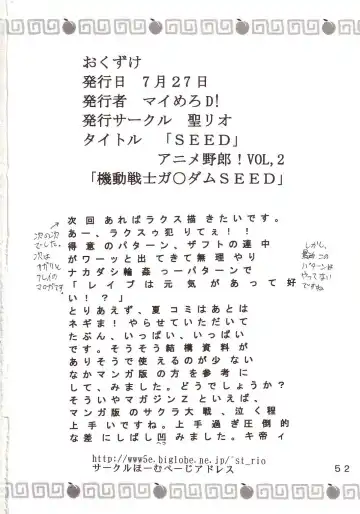 おくずけ
発行日　７月２７日
発行者　マイめろD!
発行サークル　聖リオ
タイトル　「ＳＥＥＤ」
アニメ野郎！VOL,２
「機動戦士ガ〇ダムＳＥＥＤ」
次回 あればラクス描きたいです。
あー、ラクスゥ犯りてぇ！！
得意のパターン、ザフトの連中
がワーッと出てきて無理やり
ナカダシ輪姦っーパターンで
「レイプは元気があって好
い！？」
とりあえず、夏コミはあとは
ネギま！やらせていただいて
たぶん、いっぱい、いっぱい
です。そうそう結構資料が
ありそうで使えるのが少ない
なかマンガ版の方を参考に
して、みました。どうでしょうか？
そういやマガジンＺといえば、
マンガ版のサクラ大戦、泣く程
上手いですね。上手過ぎ圧倒的
な差にしばし凹みました。キ帝ィ
次の次
でした。
次は
カガリと
フレイの
マロガです
しかし、
最近この
パターンは
やってない
ですね
http://www5e.biglobe.ne.jp/~st_rio
サークルほーむぺーじアドレス
５２